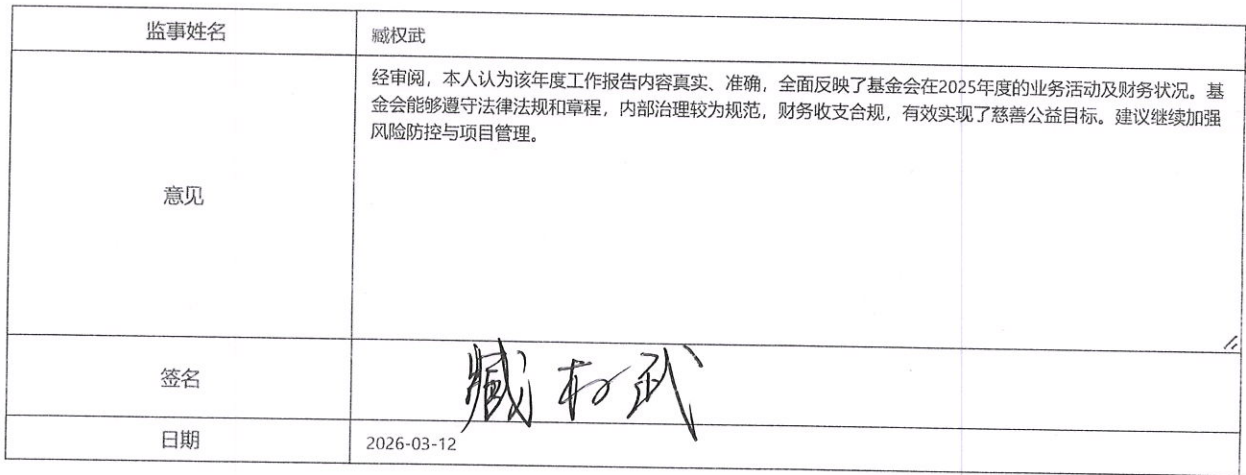 监事姓名
臧权武
意见
经审阅，本人认为该年度工作报告内容真实、准确，全面反映了基金会在2025年度的业务活动及财务状况。基
金会能够遵守法律法规和章程，内部治理较为规范，财务收支合规，有效实现了慈善公益目标。建议继续加强
风险防控与项目管理。
签名
臧权武
日期
2026-03-12